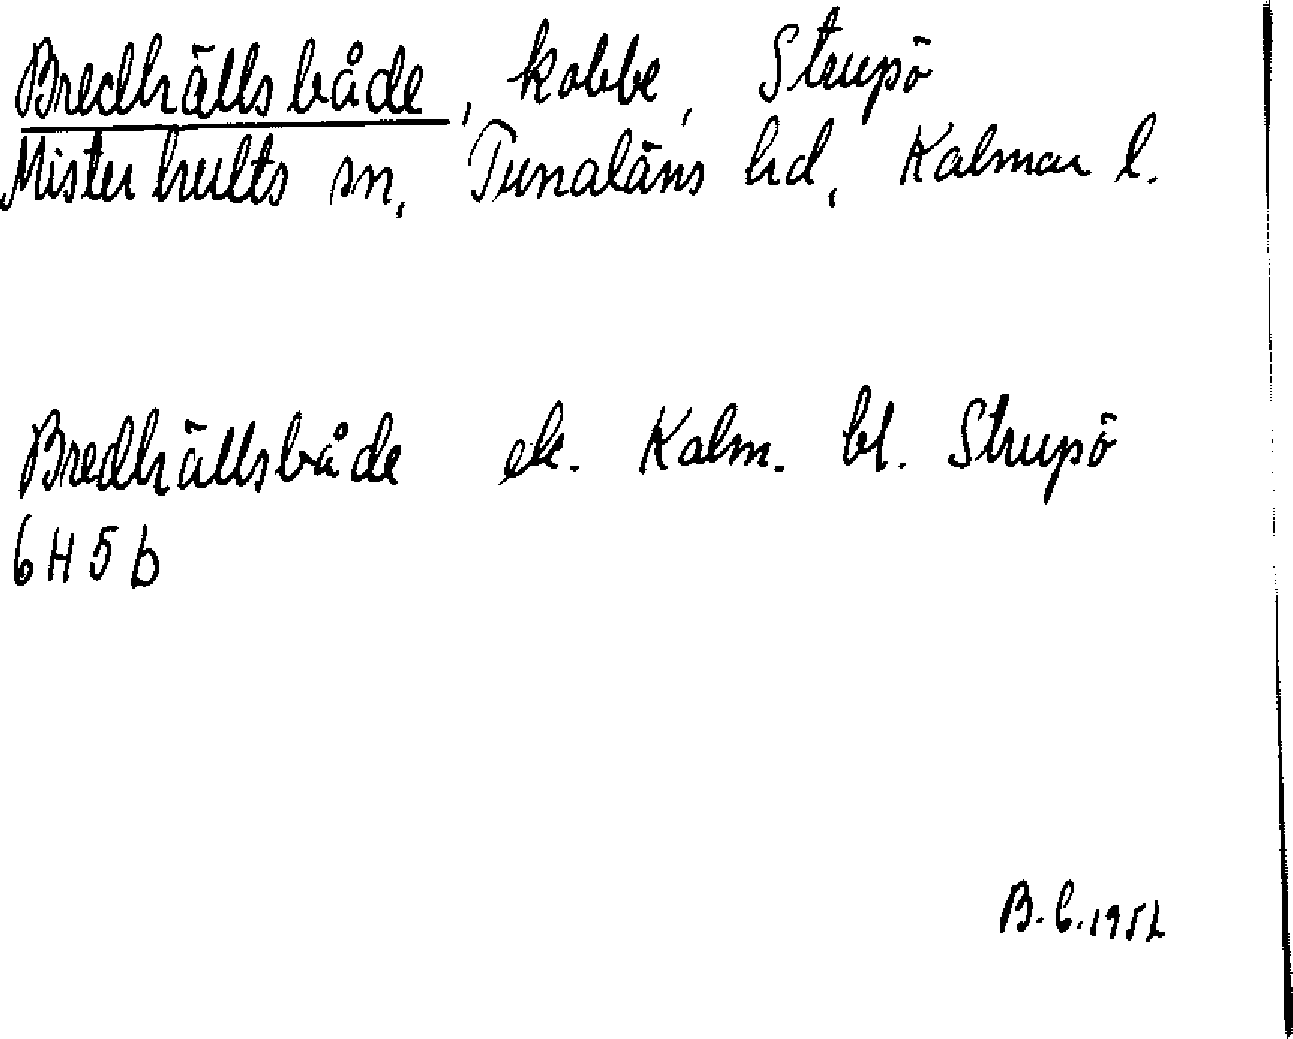 Bredhällsbåde, kobbe, Strupö
Misterhults sn, Tunaläns hd, Kalmar l.
Bredhällsbåde ek. Kalm. bl. Strupö
6H5b
B. 6. 1952